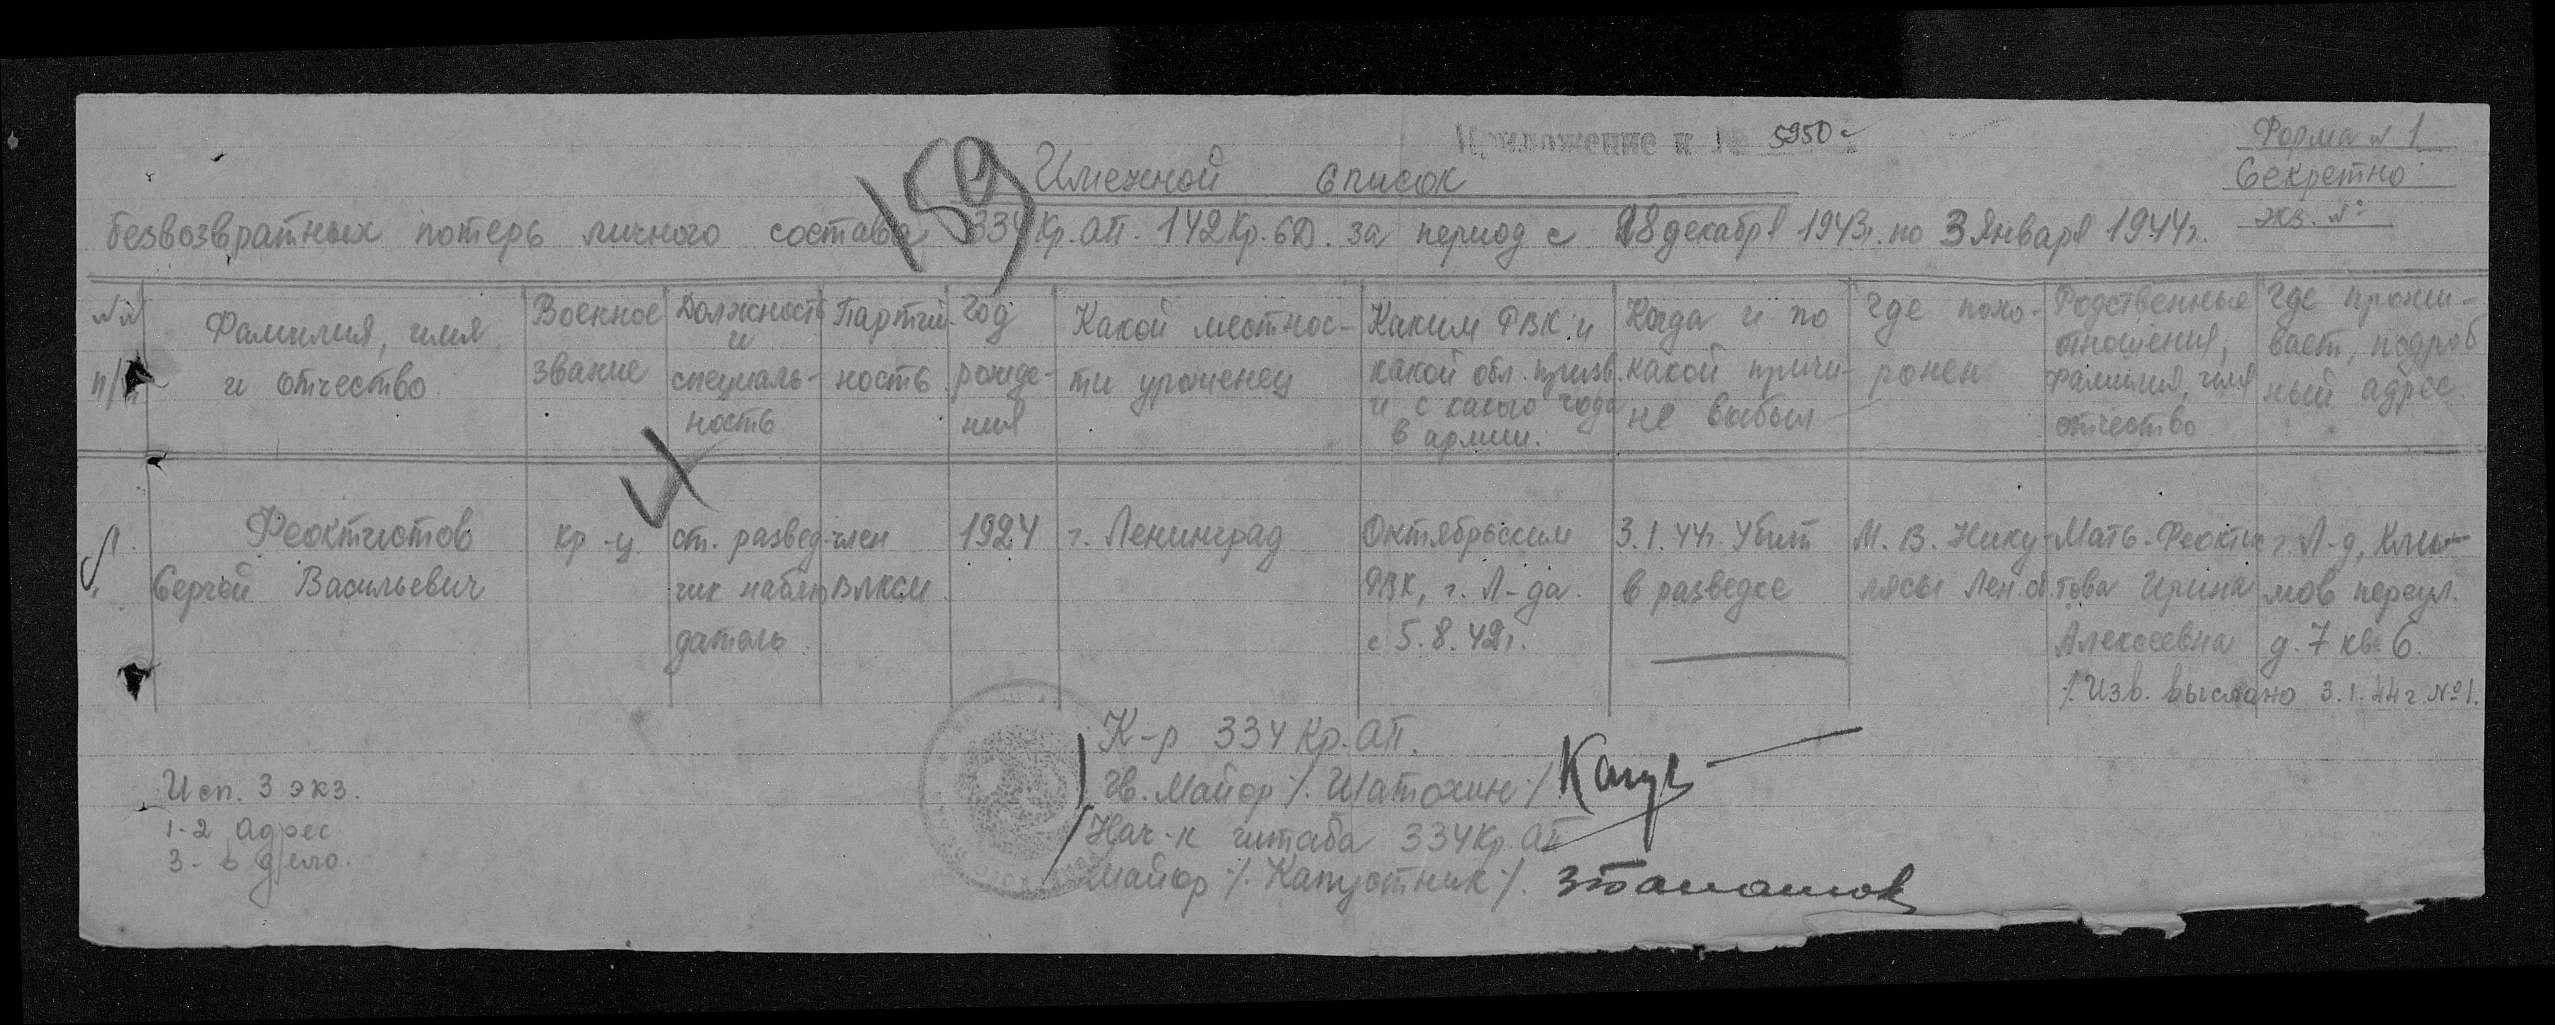 Приложение к № 5950с
Форма № 1
Секретно
экз. №
159
Именной список
безвозвратных потерь личного состава 334 Кр. АП. 142 Кр. СД. за период с 28 декабря 1943г. по 3 января 1944г.
№№ п/п
Фамилия, имя и отчество
Военное звание
Должность и специаль-ность
Партий-ность
Год рожде-ния
Какой местнос-ти уроженец
Каким РВК и какой обл. призв. и с какого года в армии.
Когда и по какой причи-не выбыл
Где похо-ронен
Родственные отношения, фамилия, имя отчество
Где прожи-вает, подроб ный адрес
Феоктистов
Сергей Васильевич
кр-ц.
ст. развед-
чик наблю
датель
член
ВЛКСМ
1924
г. Ленинград
Октябрьским
РВК, г. Л-да.
с 5.8.42г.
3.1.44г. Убит
в разведке
М. В. Нику-
лясы Лен. об.
Мать-Феоктис
това Ирина
Алексеевна
г. Л-д, Клим
мов переул.
д. 7 кв. 6.
/. Изв. выслано 3.1.44г. № 1.
К-р 334 Кр. АП.
гв. Майор /. Шатохин ./
Нач-к штаба 334 Кр. АП
майор ./. Капустник ./.
Исп. 3 экз.
1-2 Адрес
3 - в дело.